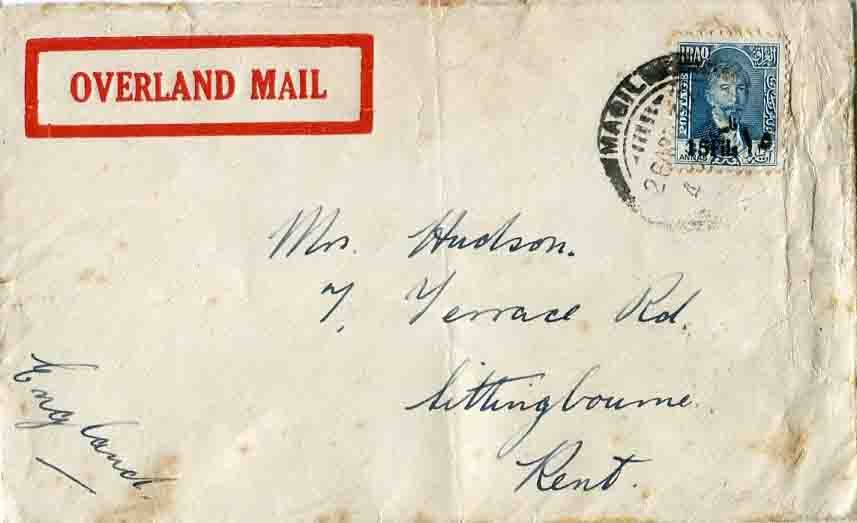 OVERLAND MAIL
IRAQ العراق
POSTAGE
15 Fils ١٥
ANNAS
MAGIL
Mrs. Hudson.
7, Terrace Rd.
Sittingbourne.
Kent.
England.